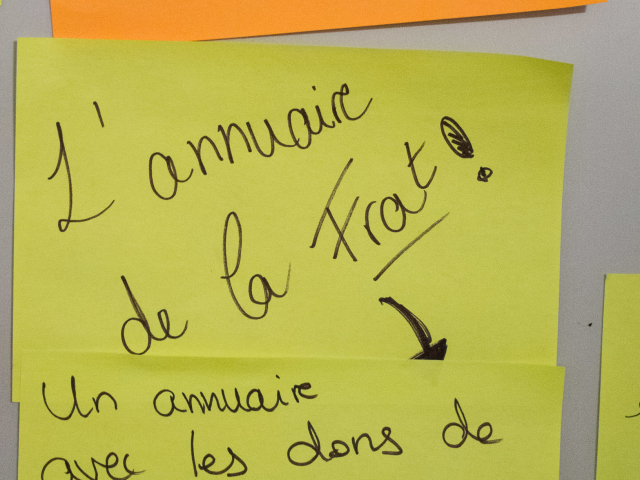 L'annuaire
de la Frat !
Un annuaire
avec les dons de